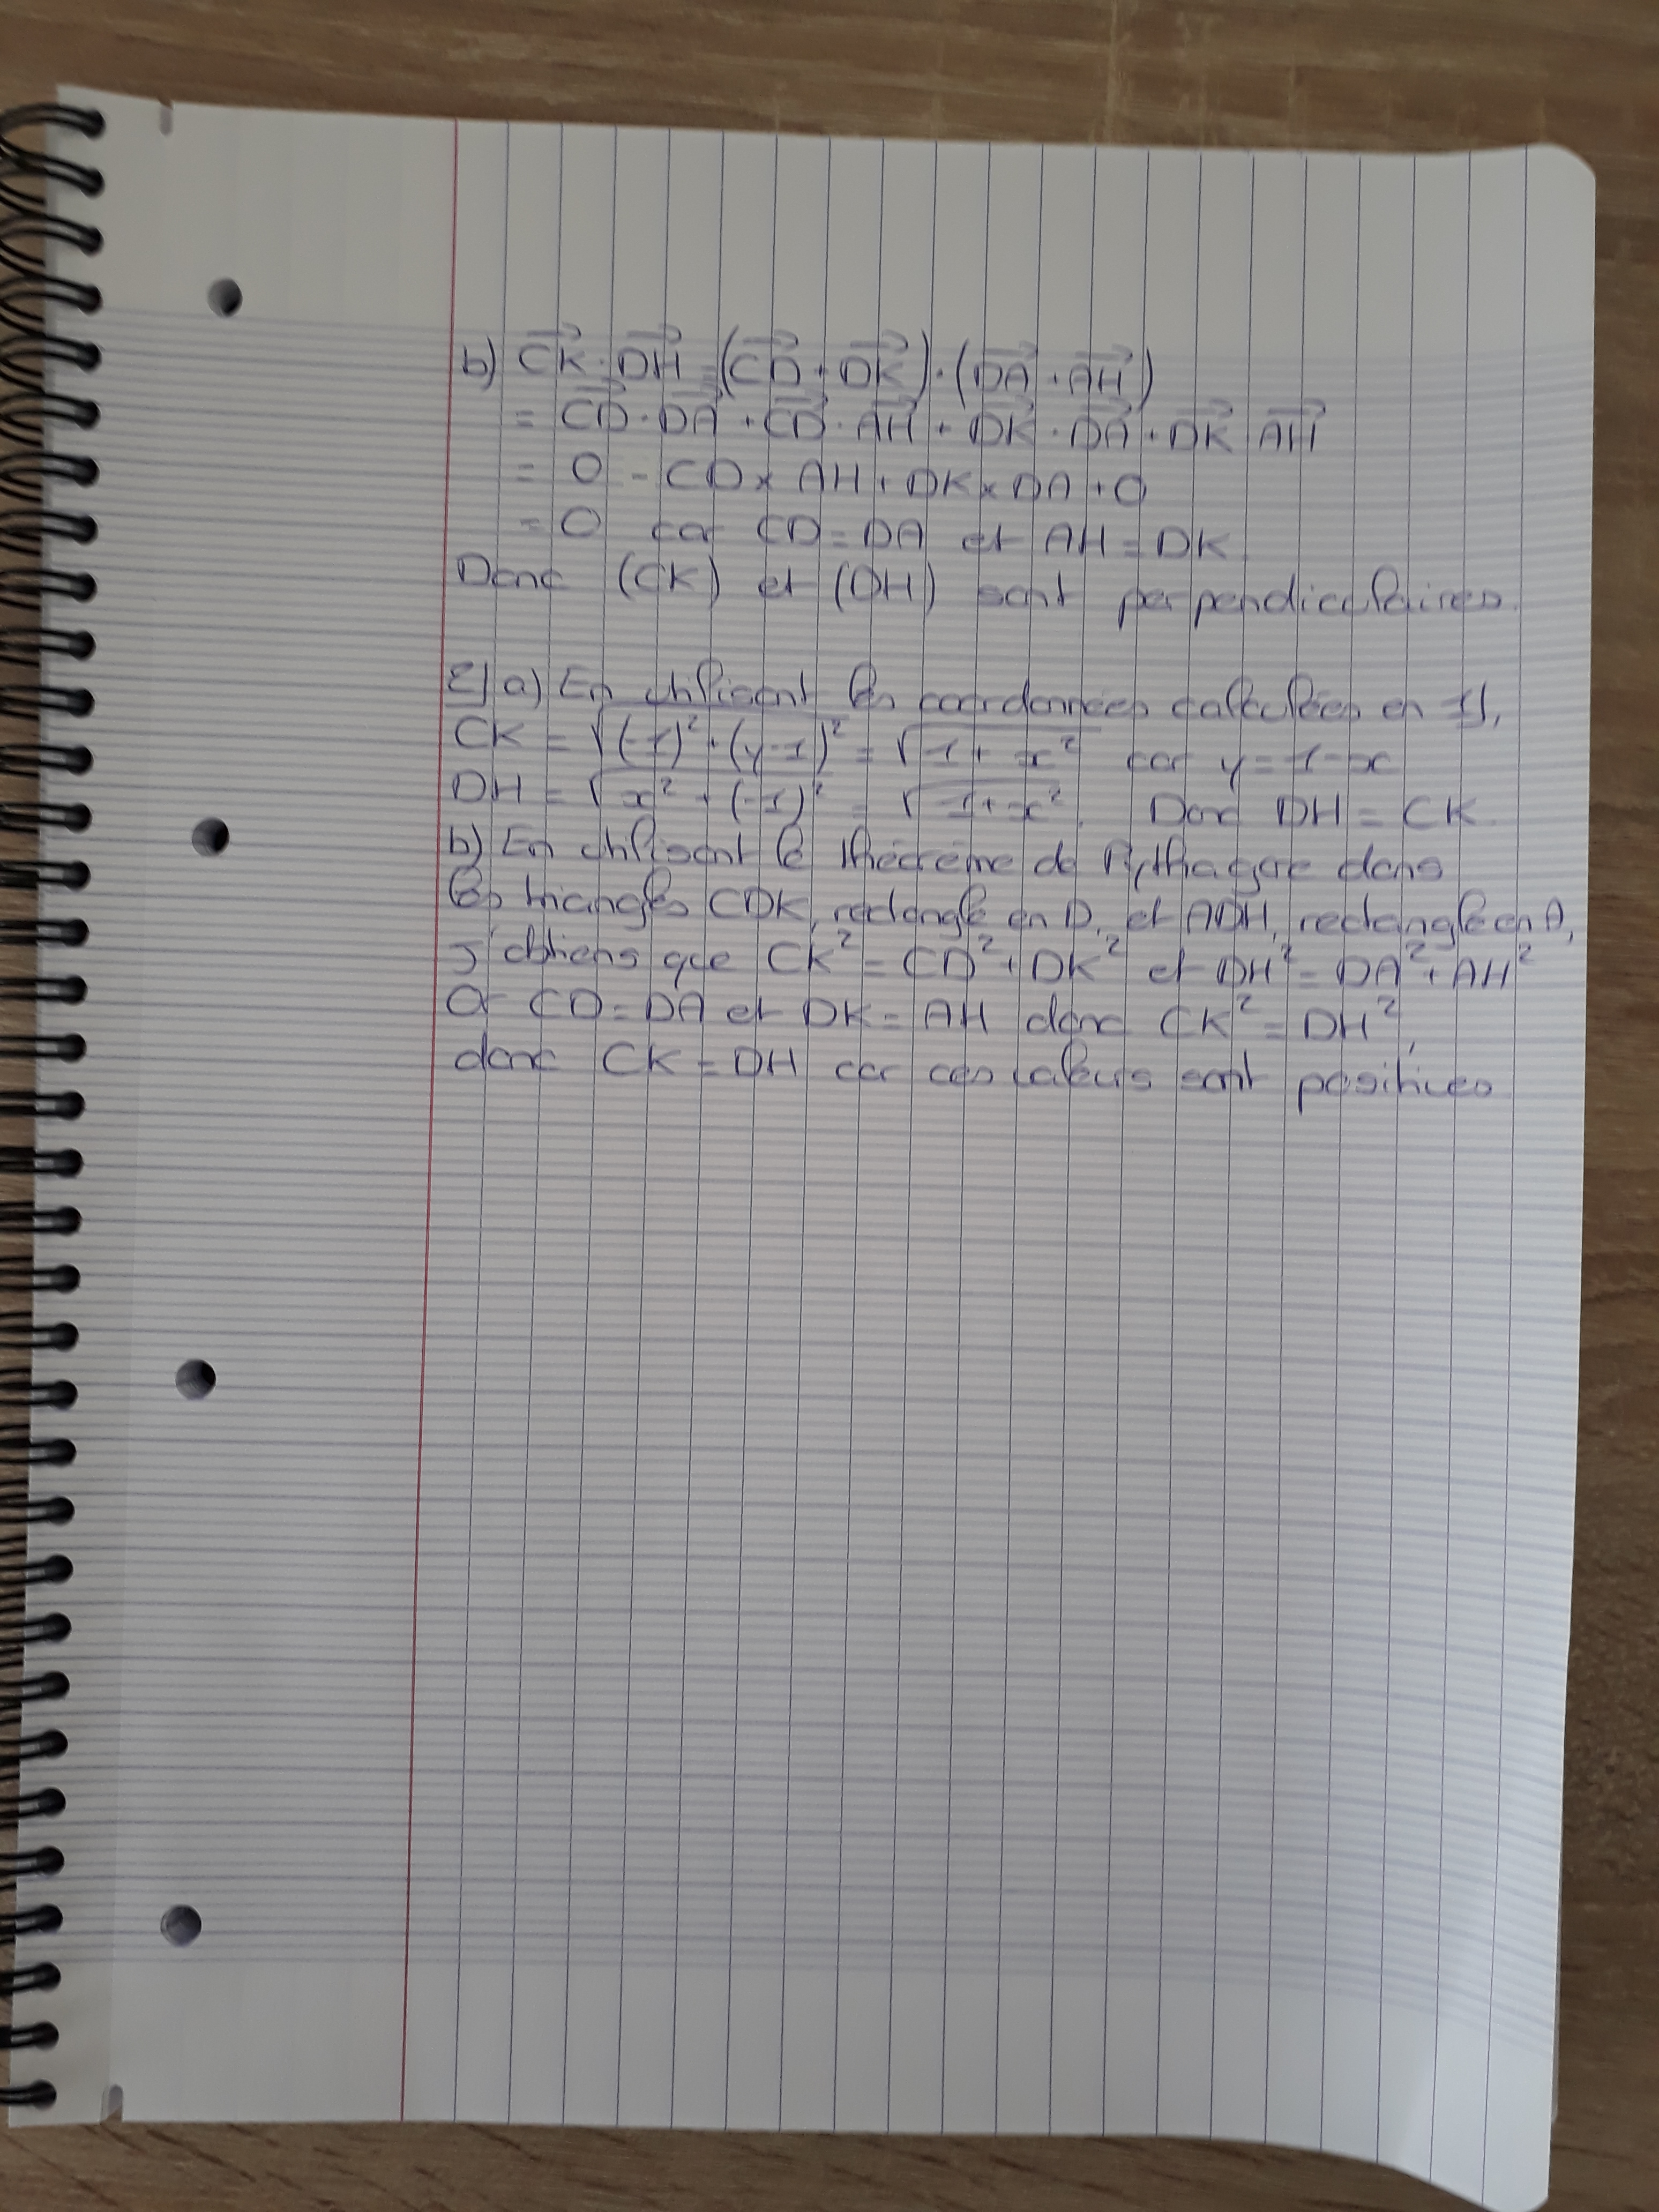 b) $\overrightarrow{CK} \cdot \overrightarrow{DH} = (\overrightarrow{CD} + \overrightarrow{DK}) \cdot (\overrightarrow{DA} + \overrightarrow{AH})$
$= \overrightarrow{CD} \cdot \overrightarrow{DA} + \overrightarrow{CD} \cdot \overrightarrow{AH} + \overrightarrow{DK} \cdot \overrightarrow{DA} + \overrightarrow{DK} \cdot \overrightarrow{AH}$
$= 0 - CD \times AH + DK \times DA + 0$
$= 0$ car $CD = DA$ et $AH = DK$
Donc (CK) et (DH) sont perpendiculaires.
2) a) En utilisant les coordonnées calculées en 1),
$CK = \sqrt{(-1)^2 + (y-1)^2} = \sqrt{1 + x^2}$ car $y = 1-x$
$DH = \sqrt{x^2 + (-1)^2} = \sqrt{1 + x^2}$. Donc $DH = CK$.
b) En utilisant le théorème de Pythagore dans
les triangles CDK, rectangle en D, et ADH, rectangle en A,
j'obtiens que $CK^2 = CD^2 + DK^2$ et $DH^2 = DA^2 + AH^2$
Or $CD = DA$ et $DK = AH$ donc $CK^2 = DH^2$,
donc $CK = DH$ car ces valeurs sont positives